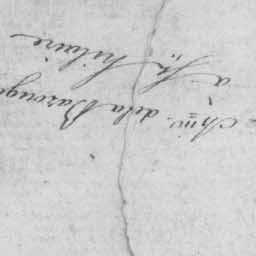 Chin. dela Barouge
a St. hilaire